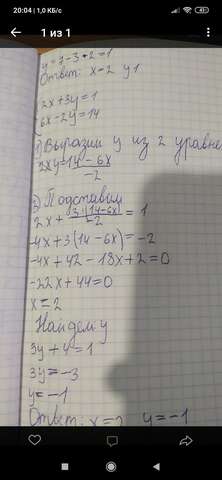 20:04 | 1,0 КБ/с
1 из 1
y = 7-3·2=1
Ответ: x=2 y 1
2x+3y=1
6x-2y=14
1) Выразим y из 2 уравне
2xy=14-6x/-2
2) Подставим
2x + 3(14-6x)/-2 = 1
-4x+3(14-6x)=-2
-4x+42-18x+2=0
-22x+44=0
x=2
Найдем y
3y+4=1
3y=-3
y=-1
Ответ: x=2 y=-1